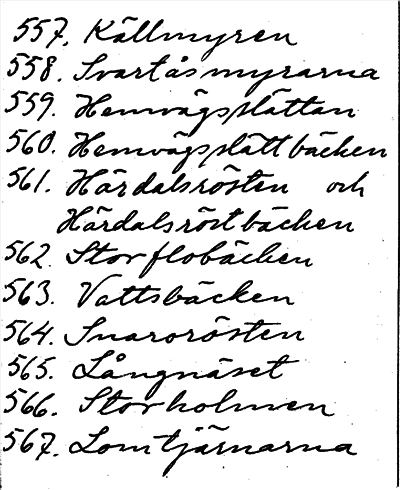 557. Källmyren
558. Svartåsmyrarna
559. Hemvägsslättan
560. Hemvägsslättbäcken
561. Härdalsrösten och
Härdalsröstbäcken
562. Storflobäcken
563. Vattsbäcken
564. Snarorösten
565. Långnäset
566. Storholmen
567. Lomtjärnarna